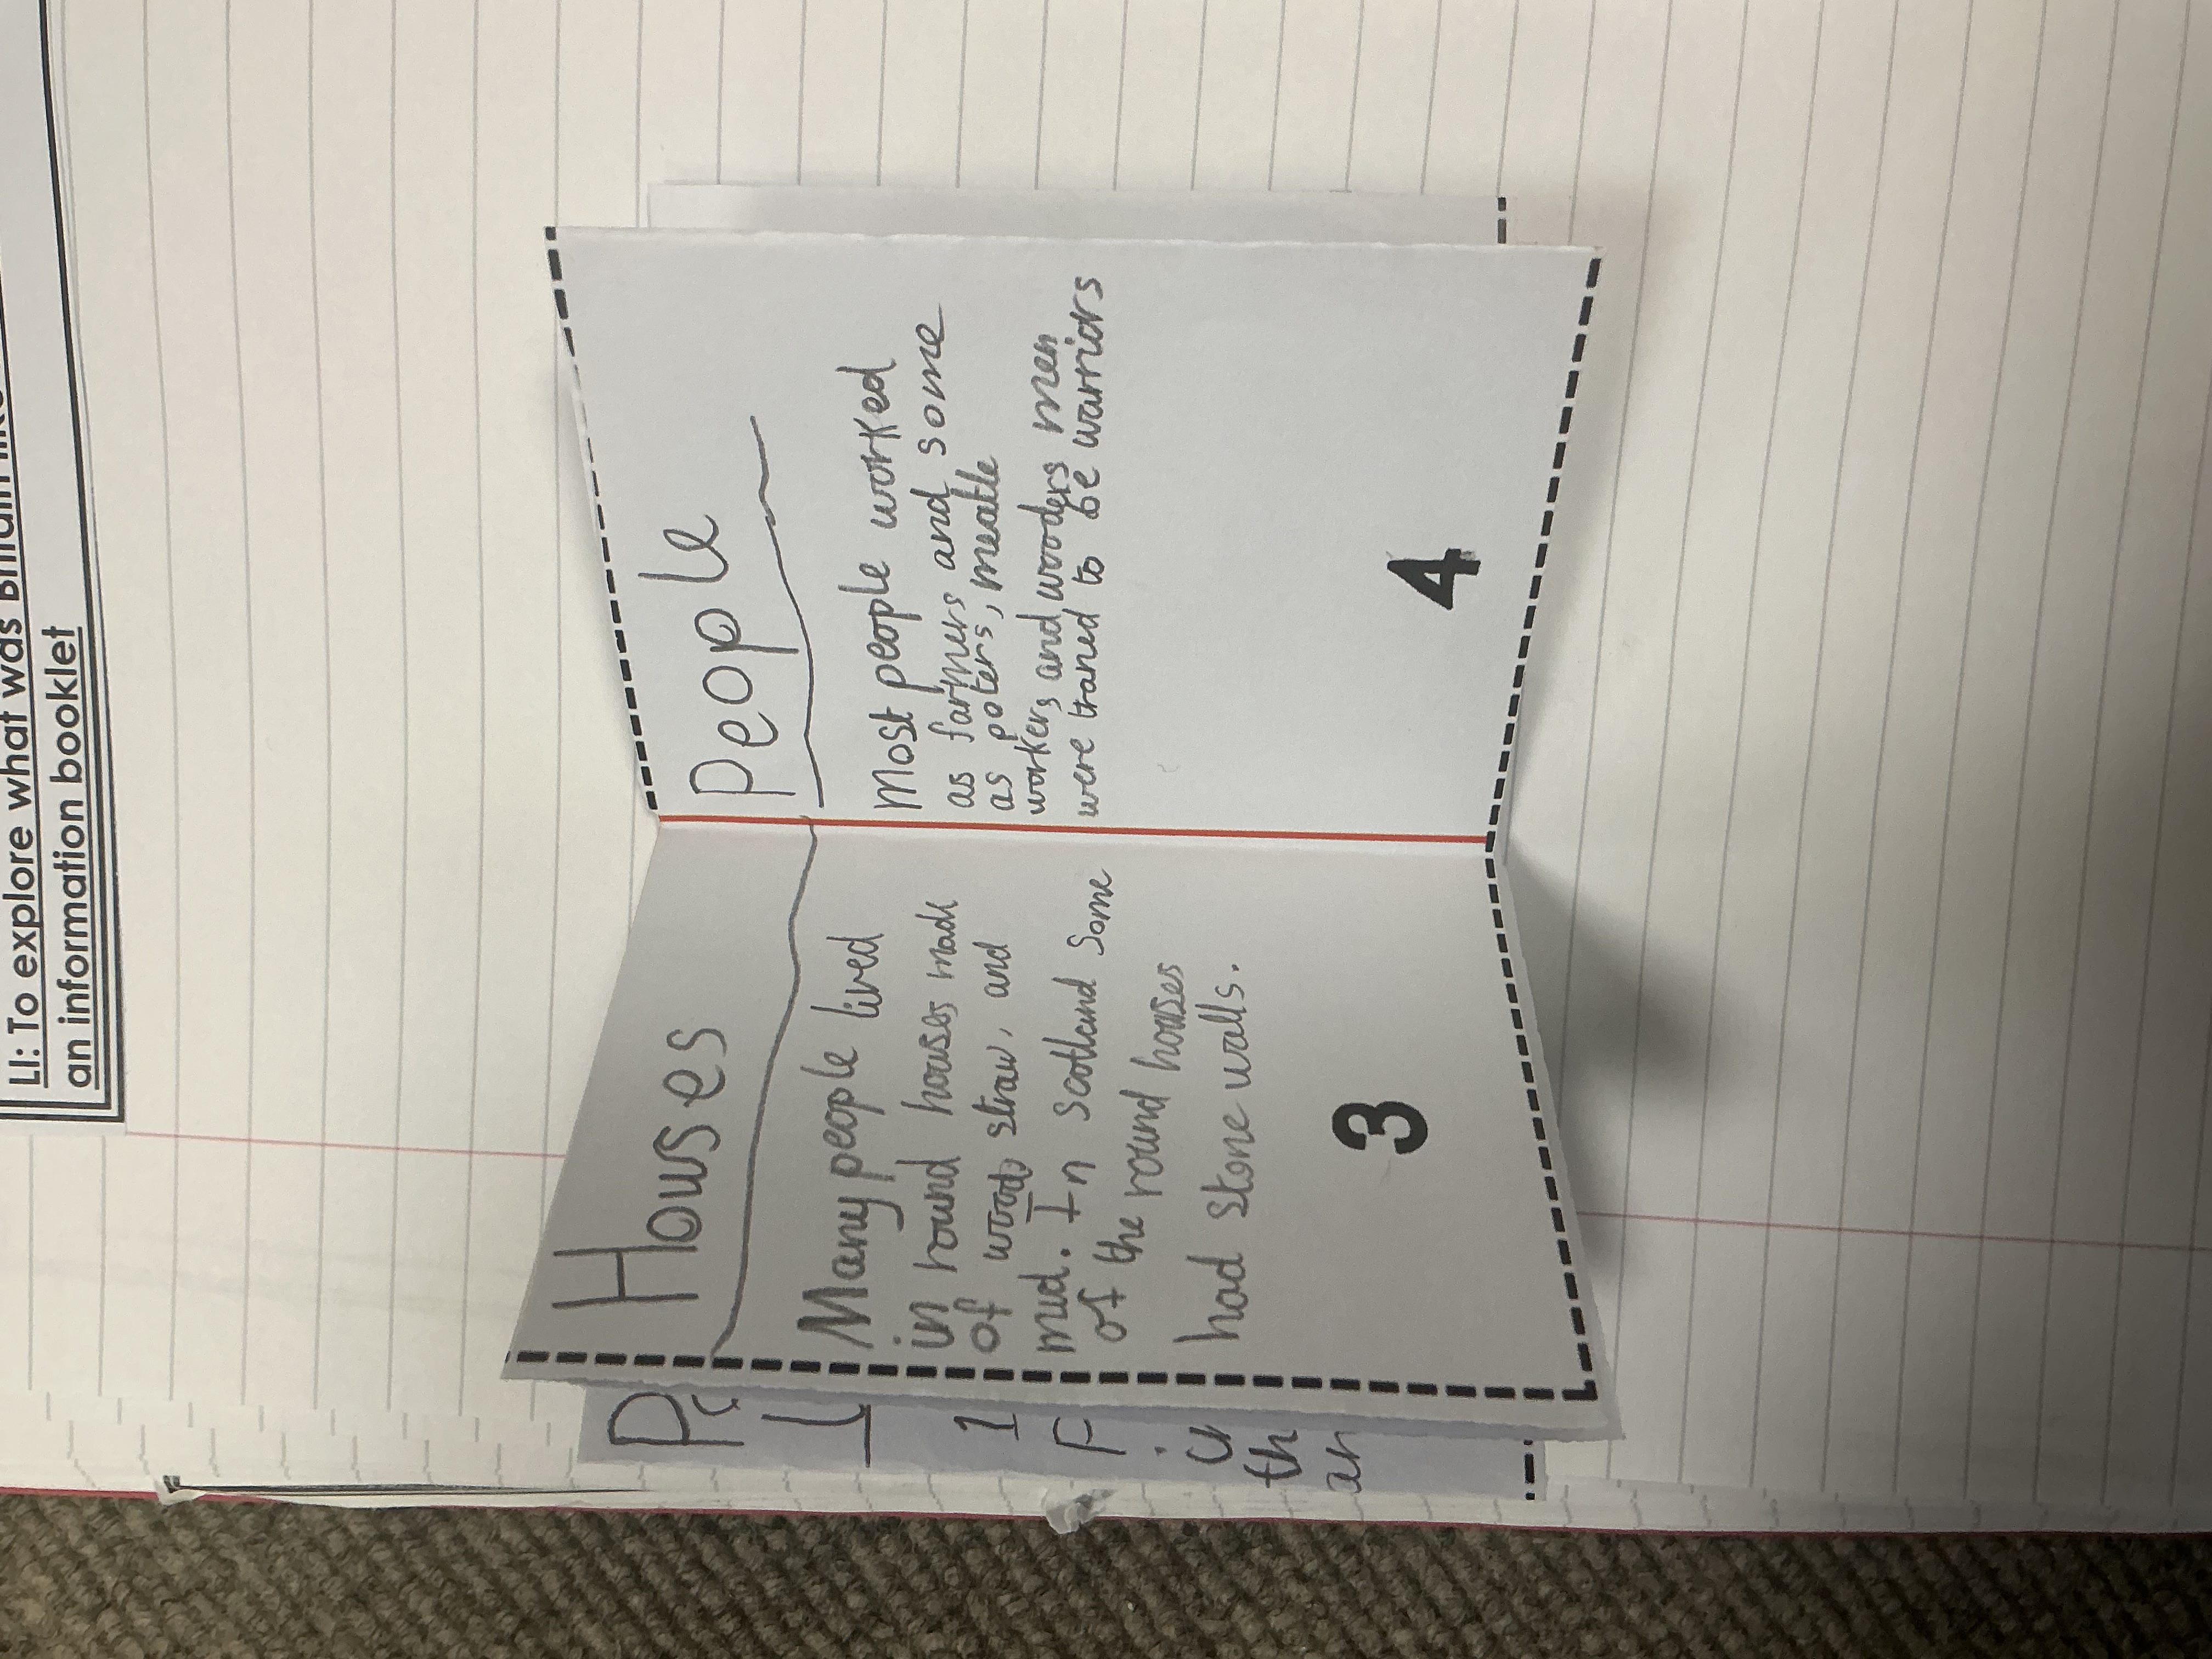 LI: To explore what was Britain like
an information booklet
Houses
Many people lived
in round houses made
of wood, straw, and
mud. In scotland some
of the round houses
had stone walls.
3
People
Most people worked
as farmers and some
as poters, meatle
workers and wooders men
were traned to be warriors
4
1
F
th
ar